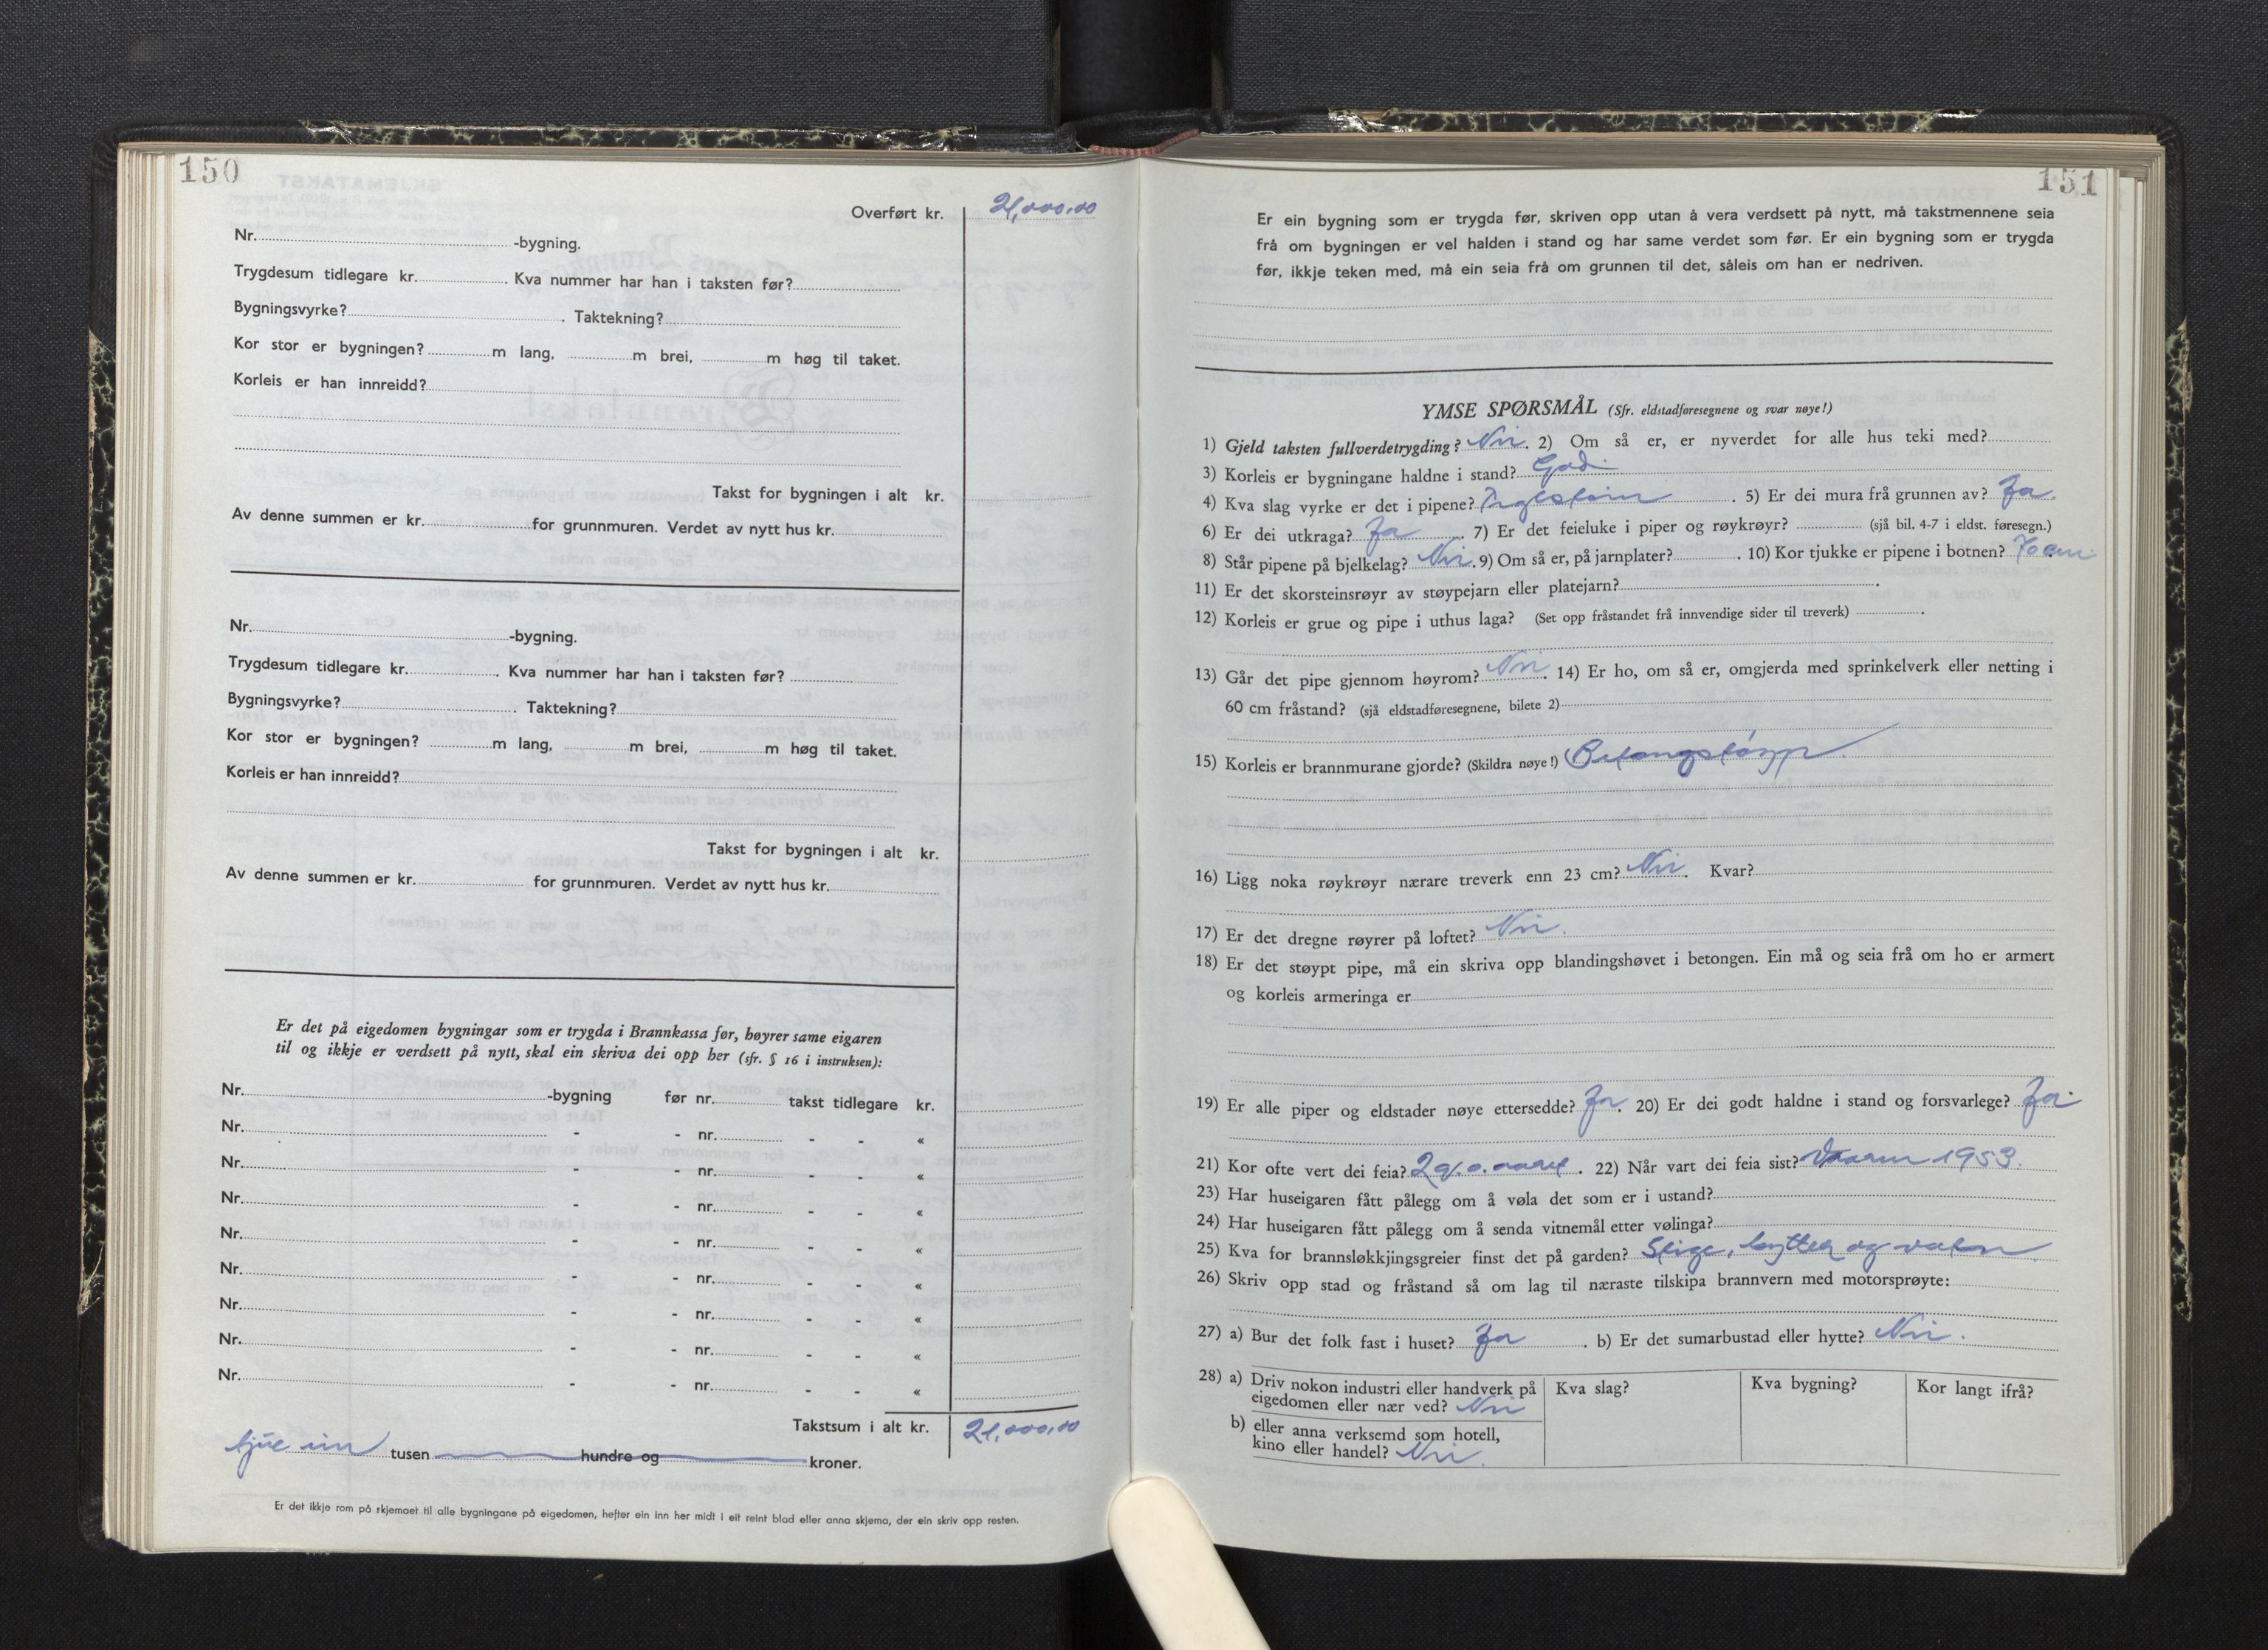 150
Overført kr. 21,000,00
Nr. -bygning.
Trygdesum tidlegare kr. . Kva nummer har han i taksten før?
Bygningsvyrke? . Taktekning?
Kor stor er bygningen? m lang, m brei, m høg til taket.
Korleis er han innreidd?
Takst for bygningen i alt kr.
Av denne summen er kr. for grunnmuren. Verdet av nytt hus kr.
Nr. -bygning.
Trygdesum tidlegare kr. . Kva nummer har han i taksten før?
Bygningsvyrke? . Taktekning?
Kor stor er bygningen? m lang, m brei, m høg til taket.
Korleis er han innreidd?
Takst for bygningen i alt kr.
Av denne summen er kr. for grunnmuren. Verdet av nytt hus kr.
Er det på eigedomen bygningar som er trygda i Brannkassa før, høyrer same eigaren
til og ikkje er verdsett på nytt, skal ein skriva dei opp her (sfr. § 16 i instruksen):
Nr. -bygning før nr. takst tidlegare kr.
Nr. - - nr. - - «
Nr. - - nr. - - «
Nr. - - nr. - - «
Nr. - - nr. - - «
Nr. - - nr. - - «
Nr. - - nr. - - «
Nr. - - nr. - - «
Nr. - - nr. - - «
Takstsum i alt kr. 21,000,00
tjue ein tusen hundre og kroner.
Er det ikkje rom på skjemaet til alle bygningane på eigedomen, hefter ein inn her midt i eit reint blad eller anna skjema, der ein skriv opp resten.
151
Er ein bygning som er trygda før, skriven opp utan å vera verdsett på nytt, må takstmennene seia
frå om bygningen er vel halden i stand og har same verdet som før. Er ein bygning som er trygda
før, ikkje teken med, må ein seia frå om grunnen til det, såleis om han er nedriven.
YMSE SPØRSMÅL (Sfr. eldstadføresegnene og svar nøye!)
1) Gjeld taksten fullverdetrygding? Nei. 2) Om så er, er nyverdet for alle hus teki med?
3) Korleis er bygningane haldne i stand? God.
4) Kva slag vyrke er det i pipene? Teglstein . 5) Er dei mura frå grunnen av? Ja.
6) Er dei utkraga? Ja . 7) Er det feieluke i piper og røykrøyr? (sjå bil. 4-7 i eldst. føresegn.)
8) Står pipene på bjelkelag? Nei. 9) Om så er, på jarnplater? . 10) Kor tjukke er pipene i botnen? 70 cm.
11) Er det skorsteinsrøyr av støypejarn eller platejarn? .
12) Korleis er grue og pipe i uthus laga? (Set opp fråstandet frå innvendige sider til treverk) .
13) Går det pipe gjennom høyrom? Nei. 14) Er ho, om så er, omgjerda med sprinkelverk eller netting i
60 cm fråstand? (sjå eldstadføresegnene, bilete 2)
15) Korleis er brannmurane gjorde? (Skildra nøye!) Betongstøyp.
16) Ligg noka røykrøyr nærare treverk enn 23 cm? Nei. Kvar?
17) Er det dregne røyrer på loftet? Nei.
18) Er det støypt pipe, må ein skriva opp blandingshøvet i betongen. Ein må og seia frå om ho er armert
og korleis armeringa er
19) Er alle piper og eldstader nøye ettersedde? Ja. 20) Er dei godt haldne i stand og forsvarlege? Ja.
21) Kor ofte vert dei feia? 2 g. o. aaret. 22) Når vart dei feia sist? Vaaren 1953.
23) Har huseigaren fått pålegg om å vøla det som er i ustand?
24) Har huseigaren fått pålegg om å senda vitnemål etter vølinga?
25) Kva for brannsløkkjingsgreier finst det på garden? Stige, bytter og vatn.
26) Skriv opp stad og fråstand så om lag til næraste tilskipa brannvern med motorsprøyte:
27) a) Bur det folk fast i huset? Ja . b) Er det sumarbustad eller hytte? Nei.
28) a) Driv nokon industri eller handverk på
eigedomen eller nær ved? Nei
b) eller anna verksemd som hotell,
kino eller handel? Nei.
Kva slag?
Kva bygning?
Kor langt ifrå?